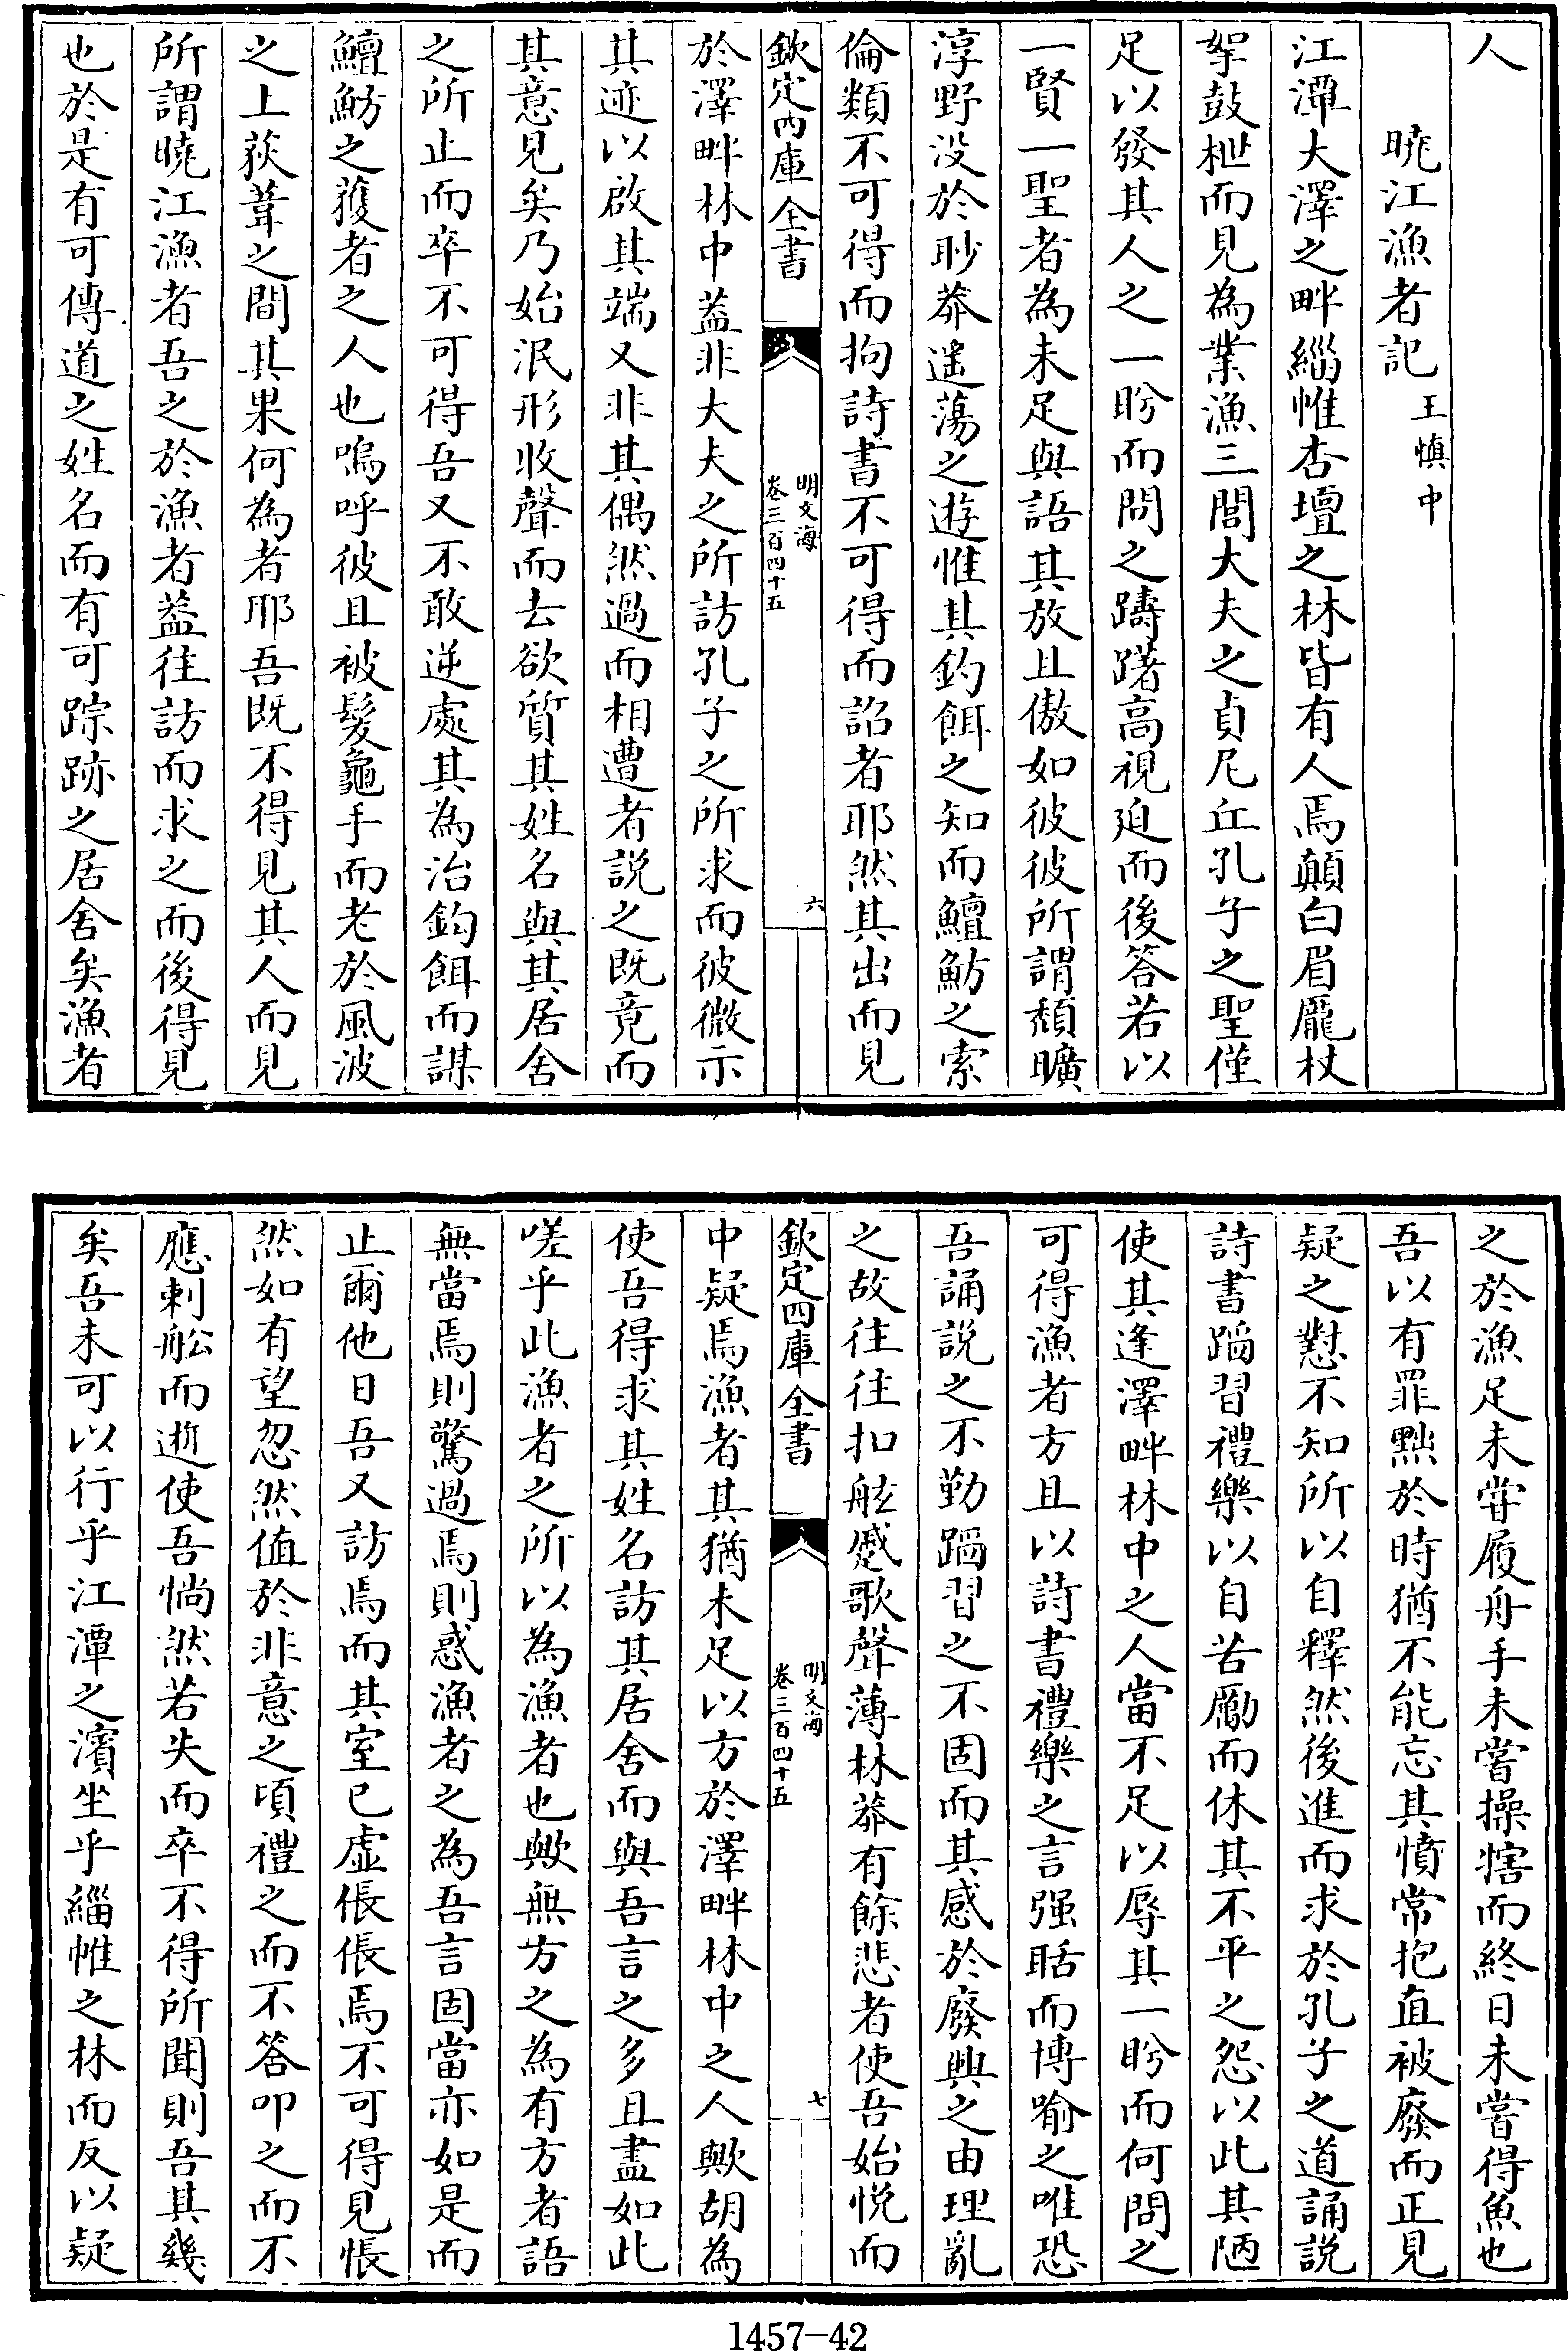 人
暁江漁者記王慎中
江潭大澤之畔緇惟杏壇之林皆有人焉顛白眉龎杖
挐鼓枻而見為業漁三閭大夫之貞尼丘孔子之聖僅
足以發其人之一盻而問之躊躇高視廹而後答若以
一賢一聖者為未足與語其放且傲如彼彼所謂頽曠
淳野没於眇莽遥蕩之遊惟其釣餌之知而鱣魴之索
倫類不可得而拘詩書不可得而詔者耶然其出而見
欽定四庫全書
明文海
卷三百四十五
六
於澤畔林中葢非大夫之所訪孔子之所求而彼微示
其迹以啟其端又非其偶然過而相遭者説之既竟而
其意見矣乃始泯形收聲而去欲質其姓名與其居舍
之所止而卒不可得吾又不敢逆處其為治鈎餌而謀
鱣魴之獲者之人也嗚呼彼且被髮龜手而老於風波
之上荻葦之間其果何為者耶吾既不得見其人而見
所謂暁江漁者吾之於漁者葢往訪而求之而後得見
也於是有可傳道之姓名而有可踪跡之居舍矣漁者
之於漁足未甞履舟手未嘗操犗而終日未嘗得魚也
吾以有罪黜於時猶不能忘其憤常抱直被廢而正見
疑之懟不知所以自釋然後進而求於孔子之道誦説
詩書蹈習禮樂以自苦勵而休其不平之怨以此其陋
使其逢澤畔林中之人當不足以辱其一盻而何問之
可得漁者方且以詩書禮樂之言强聒而博喻之唯恐
吾誦説之不勤蹈習之不固而其感於廢興之由理亂
之故往往扣舷慼歌聲薄林莽有餘悲者使吾始悦而
欽定四庫全書
明文海
卷三百四十五
七
中疑焉漁者其猶未足以方於澤畔林中之人歟胡為
使吾得求其姓名訪其居舍而與吾言之多且盡如此
嗟乎此漁者之所以為漁者也歟無方之為有方者語
無當焉則驚過焉則惑漁者之為吾言固當亦如是而
止爾他日吾又訪焉而其室已虚倀倀焉不可得見悵
然如有望忽然值於非意之頃禮之而不答叩之而不
應刺舩而逝使吾惝然若失而卒不得所聞則吾其幾
矣吾未可以行乎江潭之濱坐乎緇帷之林而反以疑
1457-42